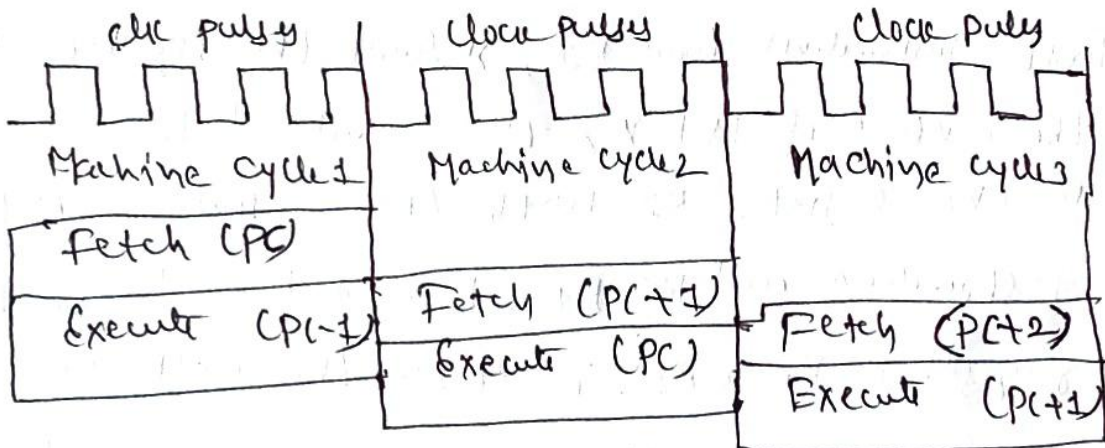 clk pulses Clock pulses Clock pulses
Machine cycle 1 Machine cycle 2 Machine cycle 3
Fetch (PC)
Execute (PC-1) Fetch (PC+1) Fetch (PC+2)
Execute (PC) Execute (PC+1)